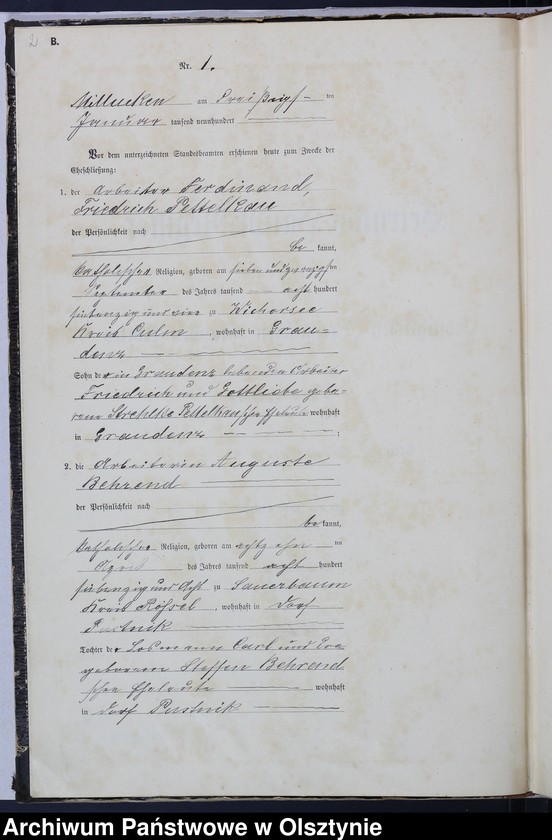 2 B.
Nr. 1.
Millucken am Dreißigs- ten
Januar tausend neunhundert
Vor dem unterzeichneten Standesbeamten erschienen heute zum Zwecke der
Eheschließung:
1. der Arbeiter Ferdinand,
Friedrich Pettelkau
der Persönlichkeit nach
be kannt,
katholischer Religion, geboren am sieben und zwanzigsten
September des Jahres tausend acht hundert
siebenzig und vier zu Wichorsee
Kreis Culm, wohnhaft in Grau=
denz
Sohn der in Graudenz lebenden Arbeiter
Friedrich und Gottliebe gebo-
rene Pettelkau'schen Eheleute wohnhaft
in Graudenz ;
2. die Arbeiterin Auguste
Behrend
der Persönlichkeit nach
be kannt,
katholischer Religion, geboren am achtzehn ten
April des Jahres tausend acht hundert
siebenzig und acht zu Sauerbaum
Kreis Rößel, wohnhaft in Dorf
Pustnik
Tochter der Losmann Carl und Eva
geborenen Steffen Behrend
'schen Eheleute wohnhaft
in Dorf Pustnik
Archiwum Państwowe w Olsztynie